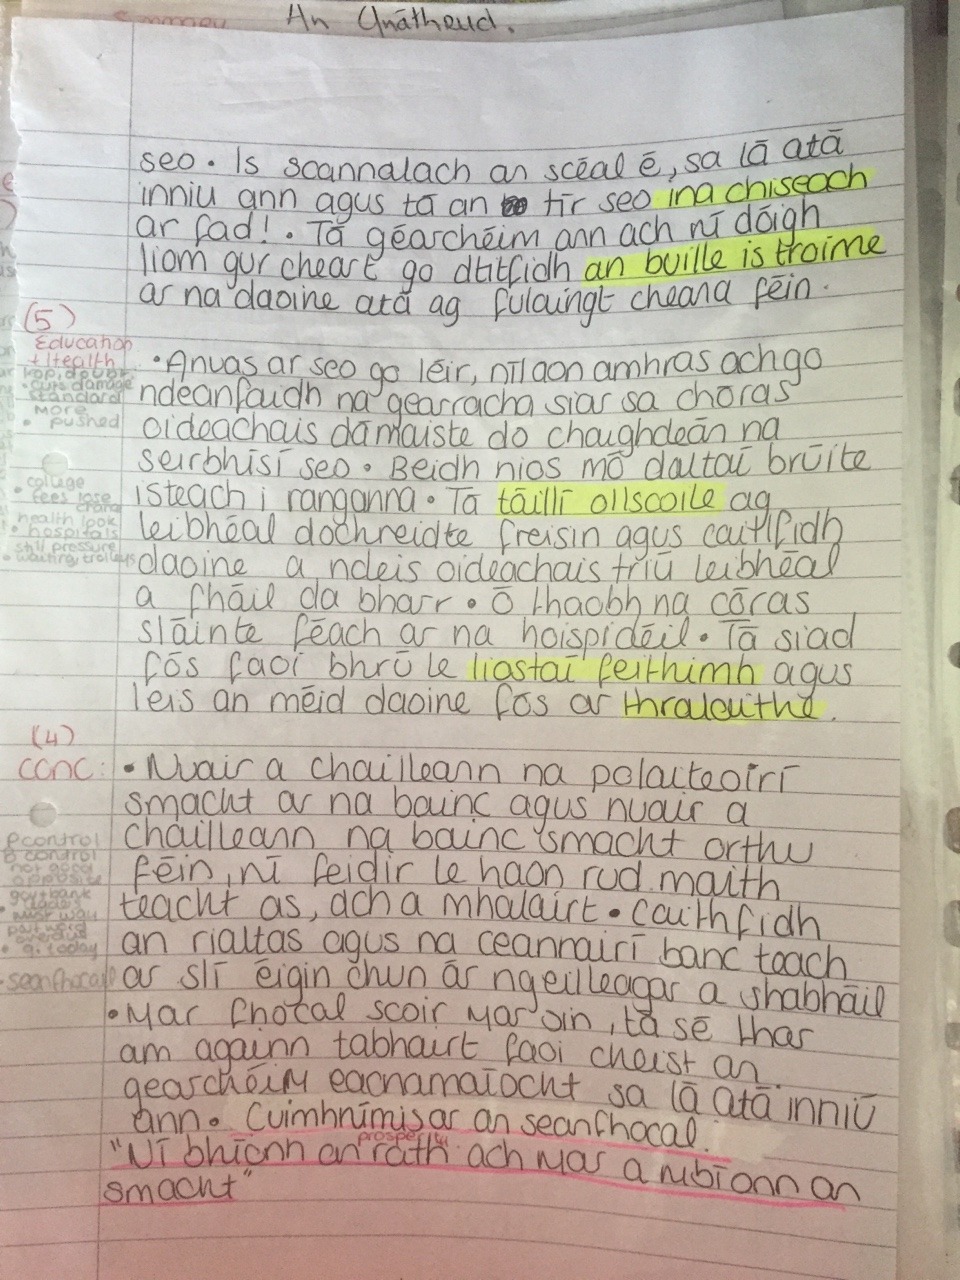 Summary
An Gnáthrud.
seo. Is scannalach an scéal é, sa lá atá
inniu ann agus tá an tír seo ina chiseach
ar fad!. Tá géarchéim ann ach ní dóigh
liom gur cheart go dtitfidh an buille is troime
ar na daoine atá ag fulaingt cheana féin.
(5)
Education
+ Health
• Anuas ar seo go léir, níl aon amhras ach go
ndéanfaidh na gearracha siar sa chóras
oideachais dámaiste do chaighdeán na
seirbhísí seo. Beidh níos mó daltaí brúite
isteach i ranganna. Tá táillí ollscoile ag
leibhéal dochreidte freisin agus caithfidh
daoine a ndeis oideachais tríú leibhéal
a fháil da bharr. Ó thaobh na córas
sláinte féach ar na hoispidéil. Tá siad
fós faoi bhrú le liostaí feithimh agus
leis an méid daoine fós ar thralaithe.
• cuts damage
standard
more
• pushed
• college
fees lose
chance
health look
• hospitals
still pressure
• waiting, trolleys
(4)
conc:
• Nuair a chailleann na polaiteoirí
smacht ar na bainc agus nuair a
chailleann na bainc smacht orthu
féin, ní feidir le haon rud maith
teacht as, ach a mhalairt. Caithfidh
an rialtas agus na ceannairí banc teach
ar slí éigin chun ár ngeilleagar a shabháil
• Mar fhocal scoir mar sin, tá sé thar
am againn tabhairt faoi cheist an
gearchéim eacnamaíocht sa lá atá inniú
ann. Cuimhnímis ar an seanfhocal.
"Ní bhíonn an ráth ach mar a mbíonn an
smacht"
P control
B control
not good
opposite
gov + bank
must way
• q. today
• seanfhocail